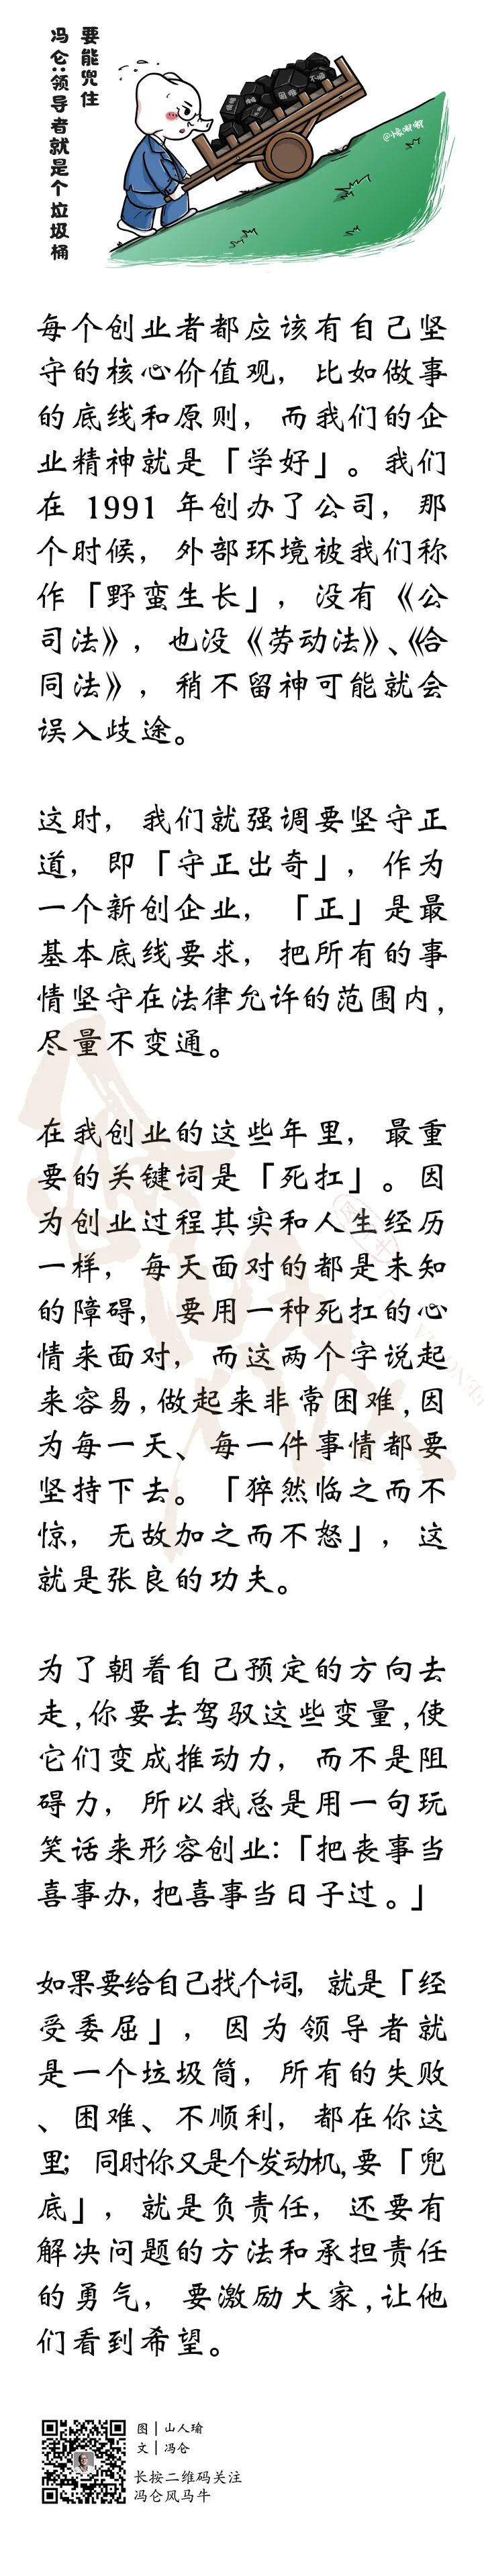 要能兜住
冯仑:领导者就是个垃圾桶
每个创业者都应该有自己坚
守的核心价值观，比如做事
的底线和原则，而我们的企
业精神就是「学好」。我们
在 1991 年创办了公司，那
个时候，外部环境被我们称
作「野蛮生长」，没有《公
司法》，也没《劳动法》、《合
同法》，稍不留神可能就会
误入歧途。
这时，我们就强调要坚守正
道，即「守正出奇」，作为
一个新创企业，「正」是最
基本底线要求，把所有的事
情坚守在法律允许的范围内，
尽量不变通。
在我创业的这些年里，最重
要的关键词是「死扛」。因
为创业过程其实和人生经历
一样，每天面对的都是未知
的障碍，要用一种死扛的心
情来面对，而这两个字说起
来容易，做起来非常困难，因
为每一天、每一件事情都要
坚持下去。「猝然临之而不
惊，无故加之而不怒」，这
就是张良的功夫。
为了朝着自己预定的方向去
走，你要去驾驭这些变量，使
它们变成推动力，而不是阻
碍力，所以我总是用一句玩
笑话来形容创业：「把丧事当
喜事办，把喜事当日子过。」
如果要给自己找个词，就是「经
受委屈」，因为领导者就
是一个垃圾筒，所有的失败
、困难、不顺利，都在你这
里；同时你又是个发动机，要「兜
底」，就是负责任，还要有
解决问题的方法和承担责任
的勇气，要激励大家，让他
们看到希望。
图 | 山人瑜
文 | 冯仑
长按二维码关注
冯仑风马牛